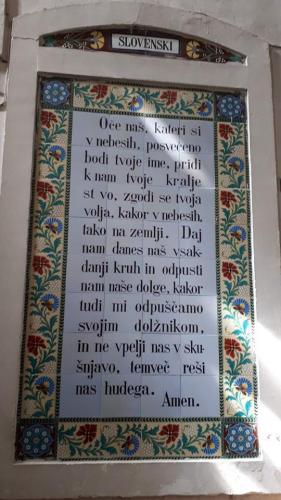 SLOVENSKI
Oče naš, kateri si
v nebesih, posvečeno
bodi tvoje ime, pridi
k nam tvoje kralje
stvo, zgodi se tvoja
volja, kakor v nebesih,
tako na zemlji. Daj
nam danes naš vsak-
danji kruh in odpusti
nam naše dolge, kakor
tudi mi odpuščamo
svojim dolžnikom,
in ne vpelji nas v sku-
šnjavo, temveč reši
nas hudega. Amen.